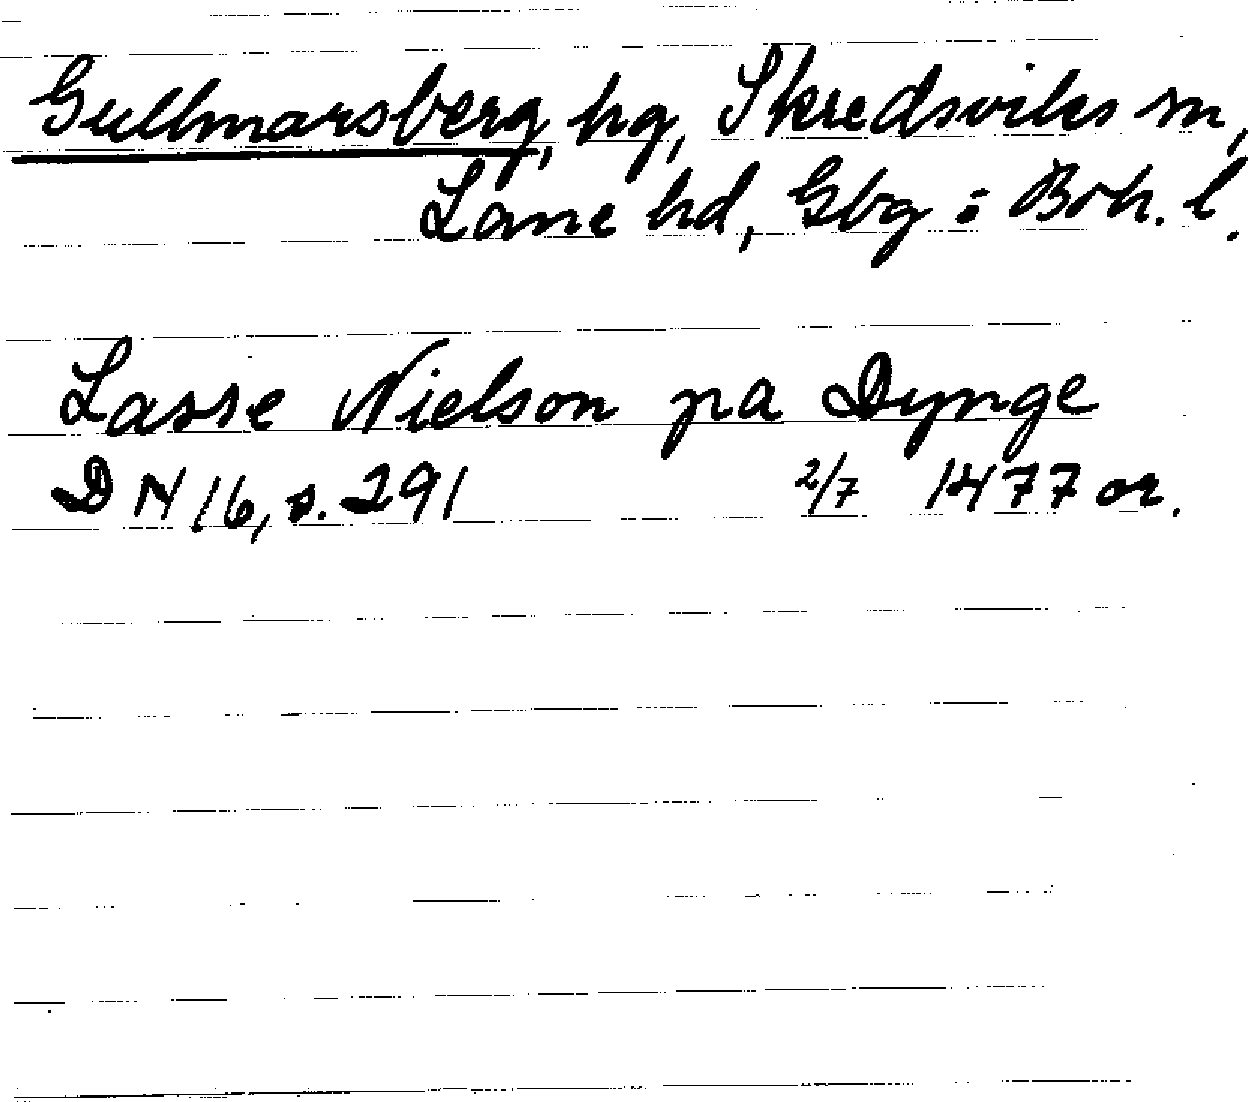 Gullmarsberg, hg, Skredsviks sn,
Lane hd, Gbg : Boh. l.
Lasse Nielson pa Dynge
D N 16, s. 291 2/7 1477 or.